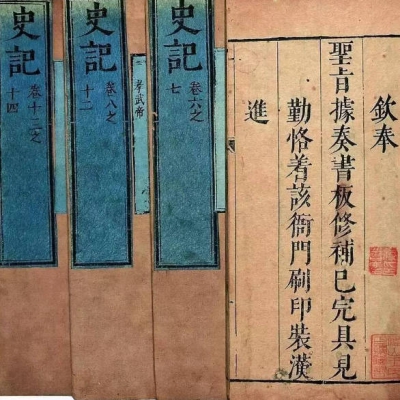 欽奉
聖旨據奏書板修補已完具見
勤恪着該衙門刷印裝潢
進
史記
卷六之
七
孝武帝
史記
卷八之
十二
史記
卷十三之
十四